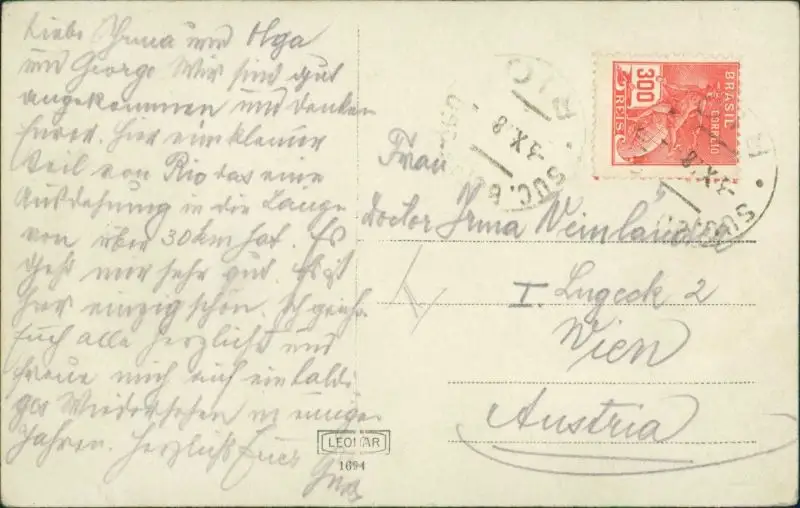 Liebe Irma und Olga
und George Wir sind gut
angekommen und danken
Eurer. Hier ein kleiner
teil von Rio das eine
Ausdehnung in die Länge
von über 30 km hat. Es
geht mir sehr gut. Es ist
hier einzig schön. Ich
Euch alle herzlichst und
freue mich auf ein baldi
ges Wiedersehen in einigen
Jahren. Herzlichst Euer
Frau
Doctor Irma Weinländer
I. Lugeck 2
Wien
Austria
BRASIL
CORREIO
300
REIS
RIO
SUC. 6
-3.X.8
-3.X.8
LEONAR
1694